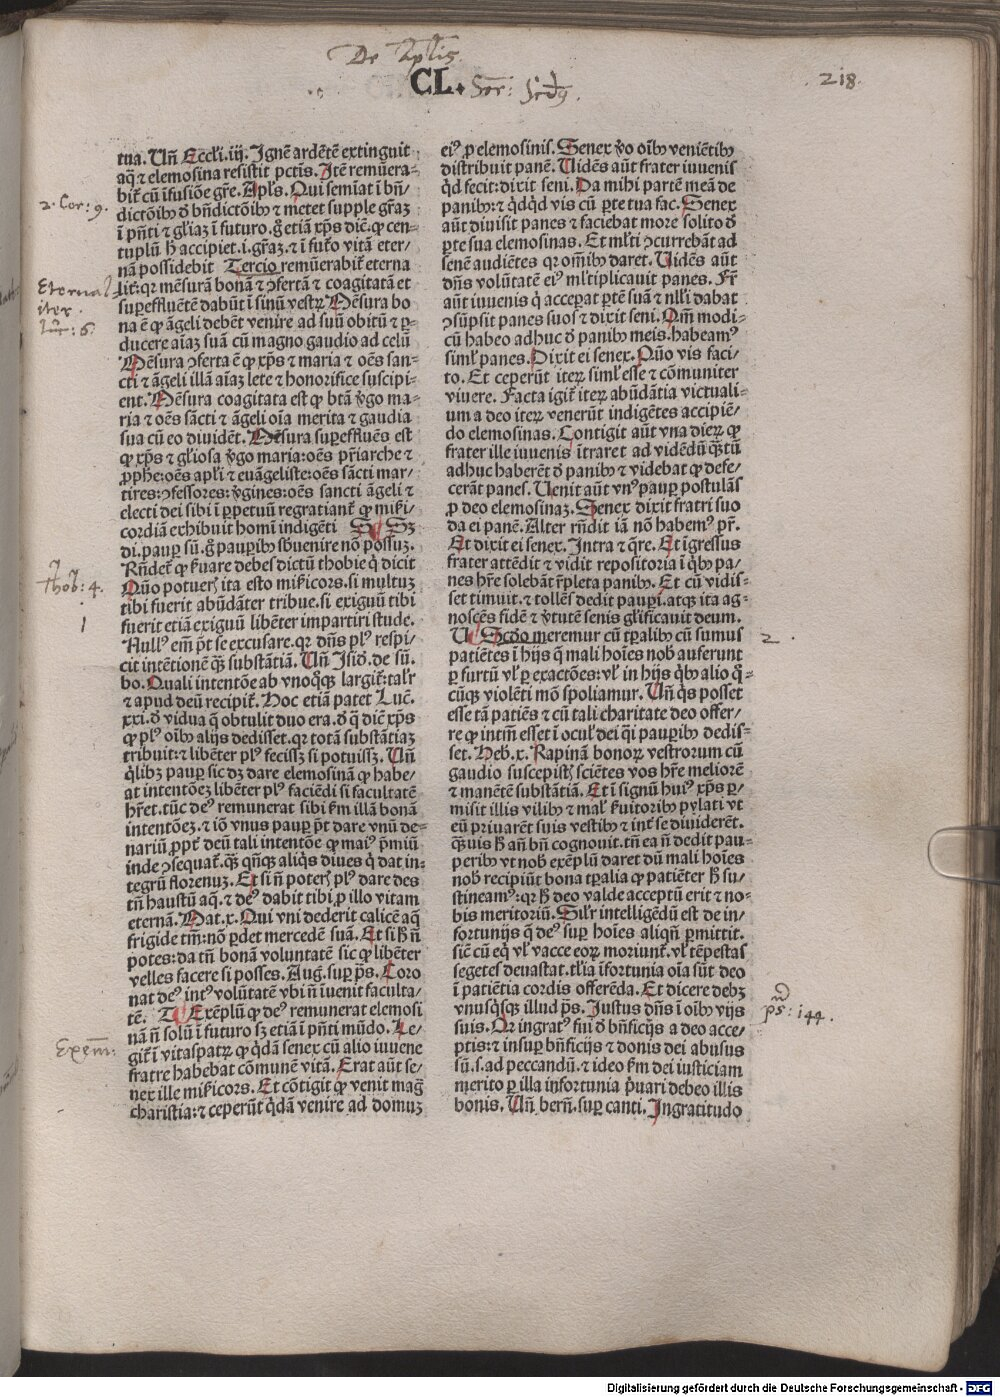 De Apl'is
CL. Ser: Scdꝰ.
218.
tua. Un̄ Eccl'i. iij. Ignē ardētē extinguit
aq̄ ⁊ elemosina resistit pctīs. Itē remūera-
bit᷑ cū īfusiōe gr̄e. Apl's. Qui semīat ī bn̄/
2. Cor: 9.
dictōib⁹ d̄ bn̄dictōib⁹ ⁊ metet supple gr̄aꝫ
ī p̄nti ⁊ gl'iaꝫ ī futuro. g̊ etiā xp̄s diē. ꝙ cen-
tuplū h̄ accipiet. i. gr̄aꝫ. ⁊ ī fut᷑o vitā eter/
nā possidebit Tercio remūerabit᷑ eterna
Eternal
iter.
Luc̄: 6.
lit᷑: qr mēsurā bonā ⁊ ꝯfertā ⁊ coagitatā et
suꝑeffluētē dabūt ī sinū vestrꝝ Mēsura bo
na ē ꝙ āgeli debēt venire ad suū obitū ⁊ ꝑ-
ducere aīaꝫ suā cū magno gaudio ad celū
Mēsura ꝯferta ē ꝙ xp̄s ⁊ maria ⁊ oēs san-
cti ⁊ āgeli illā aīaꝫ lete ⁊ honorifice suscipi-
ent. Mēsura coagitata est ꝙ btā v̄go ma-
ria ⁊ oēs sācti ⁊ āgeli oīa merita ⁊ gaudia
sua cū eo diuidēt. Mēsura suꝑeffluēs est
ꝙ xp̄s ⁊ gl'iosa v̄go maria: oēs pr̄iarche ⁊
ꝓphe: oēs apl'i ⁊ euāgeliste: oēs sācti mar/
tires: ꝯfessores: v̄gines: oēs sancti āgeli ⁊
electi dei sibi ī ꝑpetuū regratiant᷑ ꝙ mīki
cordiā exhibuit homī indigēti S Sꝫ
di. pauꝑ sū. g̊ pauꝑib⁹ sb̄uenire nō possuꝫ.
Thob: 4.
Rn̄det᷑ ꝙ ẜuare debes dictū thobie q̄ dicit
Quō potueꝝ ita esto mīkicors. si multuꝫ
tibi fuerit abūdāter tribue. si exiguū tibi
1
fuerit etiā exiguū libēter impartiri stude.
Null⁹ em̄ p̄t se excusare. qr dn̄s pl⁹ respi/
cit intētionē q̄ꝫ substātiā. Un̄ Isid̄. de sū.
bo. Quali intentōe ab vnoq̄qꝫ largit᷑: tal'r
⁊ apud deū recipit᷑. Hoc etiā patet Luc̄.
xxi. d̄ vidua q̄ obtulit duo era. d̄ q̄ diē xp̄s
ꝙ pl⁹ oīb⁹ alijs dedisset. qr totā substātiaꝫ
tribuit: ⁊ libēter pl⁹ fecissꝫ si potuissꝫ. Un̄
q̄libꝫ pauꝑ sic dꝫ dare elemosinā ꝙ habe/
at intentōeꝫ libēter pl⁹ faciēdi si facultatē
hr̄et. tūc de⁹ remunerat sibi ẜm illā bonā
intentōeꝫ. ⁊ iō vnus pauꝑ p̄t dare vnū de-
nariū ꝓpt᷑ deū tali intentōe ꝙ mai⁹ p̄miū
inde ꝯsequat᷑. q̄ꝫ qn̄qꝫ aliq̄s diues q̄ dat in-
tegrū florenuꝫ. Et si n̄ poteꝝ pl⁹ dare des
tn̄ haustū aq̄. ⁊ de⁹ dabit tibi ꝓ illo vitam
eternā. Mat. x. Qui vni dederit calicē aq̄
frigide tm̄: nō ꝑdet mercedē suā. Et si h̄ n̄
potes: da tn̄ bonā voluntatē sic ꝙ libēter
velles facere si posses. Aug. suꝑ ps̄. Coro
nat de⁹ int⁹ volūtatē vbi n̄ īuenit faculta/
tē. T Exēplū ꝙ de⁹ remunerat elemosi
nā n̄ solū ī futuro sꝫ etiā ī p̄nti mūdo. Le/
Exem̄:
git᷑ ī vitaspatꝝ ꝙ q̄dā senex cū alio iuuene
fratre habebat cōmunē vitā. Erat aūt se/
nex ille mīkicors. Et cōtigit ꝙ venit maḡ
charistia: ⁊ ceperūt q̄dā venire ad domuꝫ
ei⁹ ꝓ elemosinis. Senex v̄o oīb⁹ veniētib⁹
distribuit panē. Uidēs aūt frater iuuenis
qd̄ fecit: dixit seni. Da mihi partē meā de
panib⁹: ⁊ qd̄qd̄ vis cū ꝑte tua fac. Senex
aūt diuisit panes ⁊ faciebat more solito d̄
ꝑte sua elemosinas. Et ml'ti ꝯcurrebāt ad
senē audiētes qr om̄ib⁹ daret. Uidēs aūt
dn̄s volūtatē ei⁹ ml'tiplicauit panes. Fr̄
aūt iuuenis q̄ acceꝑat ꝑtē suā ⁊ nl'li dabat
ꝯsūpsit panes suos ⁊ dixit seni. Qm̄ modi-
cū habeo adhuc d̄ panib⁹ meis. habeam⁹
siml' panes. Dixit ei senex. Quō vis faci/
to. Et ceperūt iterꝝ siml' esse ⁊ cōmuniter
viuere. Facta igit᷑ iterꝝ abūdātia victuali-
um a deo iterꝝ venerūt indigētes accipiē/
do elemosinas. Contigit aūt vna dierꝝ ꝙ
frater ille iuuenis ītraret ad vidēdū q̄ꝫtū
adhuc haberēt d̄ panib⁹ ⁊ videbat ꝙ defe/
cerāt panes. Uenit aūt vn⁹ pauꝑ postulās
ꝓ deo elemosinaꝫ. Senex dixit fratri suo
da ei panē. Alter rn̄dit iā nō habem⁹ pr̄.
Et dixit ei senex. Intra ⁊ q̄re. Et īgressus
frater attēdit ⁊ vidit repositoria ī qb⁹ pa/
nes hr̄e solebāt r̄pleta panib⁹. Et cū vidis-
set timuit. ⁊ tollēs dedit pauꝑi. atqꝫ ita ag-
noscēs fidē ⁊ v̄tutē senis gl'ificauit deum.
2.
U Scdo meremur cū tꝑalib⁹ cū sumus
patiētes ī hijs q̄ mali hoīes nob auferunt
ꝑ furtū vl' ꝑ exactōes: vl' in hijs qb⁹ alio q̄-
cūqꝫ violēti mō spoliamur. Un̄ qs posset
esse tā patiēs ⁊ cū tali charitate deo offer/
re ꝙ intm̄ esset ī ocul' dei q̄i pauꝑib⁹ dedis-
set. Heb. x. Rapinā bonoꝝ vestrorum cū
gaudio suscepistꝫ sciētes vos hr̄e meliorē
⁊ manētē substātiā. Et ī signū hui⁹ xp̄s ꝑ/
misit illis vilib⁹ ⁊ mal' ẜuitorib⁹ pylati vt
eū priuarēt suis vestib⁹ ⁊ int᷑ se diuiderēt.
q̄ꝫuis h̄ an̄ bn̄ cognouit. tn̄ ea n̄ dedit pau-
perib⁹ vt nob exēplū daret dū mali hoīes
nob recipiūt bona tꝑalia ꝙ patiēter h̄ su/
stineam⁹: qr h̄ deo valde acceptū erit ⁊ no-
bis meritoriū. Sil'r intelligēdū est de in/
fortunijs q̄ de⁹ suꝑ hoīes aliqn̄ ꝑmittit.
sic̄ cū eq̄ vl' vacce eoꝝ moriunt᷑. vl' tēpestas
segetes deuastat. tl'ia īfortunia oīa sūt deo
ī patiētia cordis offerēda. Et dicere debꝫ
ps̄: 144.
vnusq̄sqꝫ illud ps̄. Justus dn̄s ī oīb⁹ vijs
suis. Qr ingrat⁹ fui d̄ bn̄ficijs a deo acce/
ptis: ⁊ insuꝑ bn̄ficijs ⁊ donis dei abusus
sū. s. ad peccandū. ⁊ ideo ẜm dei iusticiam
merito ꝑ illa infortunia p̄uari debeo illis
bonis. Un̄ bern̄. suꝑ canti. Ingratitudo
Digitalisierung gefördert durch die Deutsche Forschungsgemeinschaft - DFG